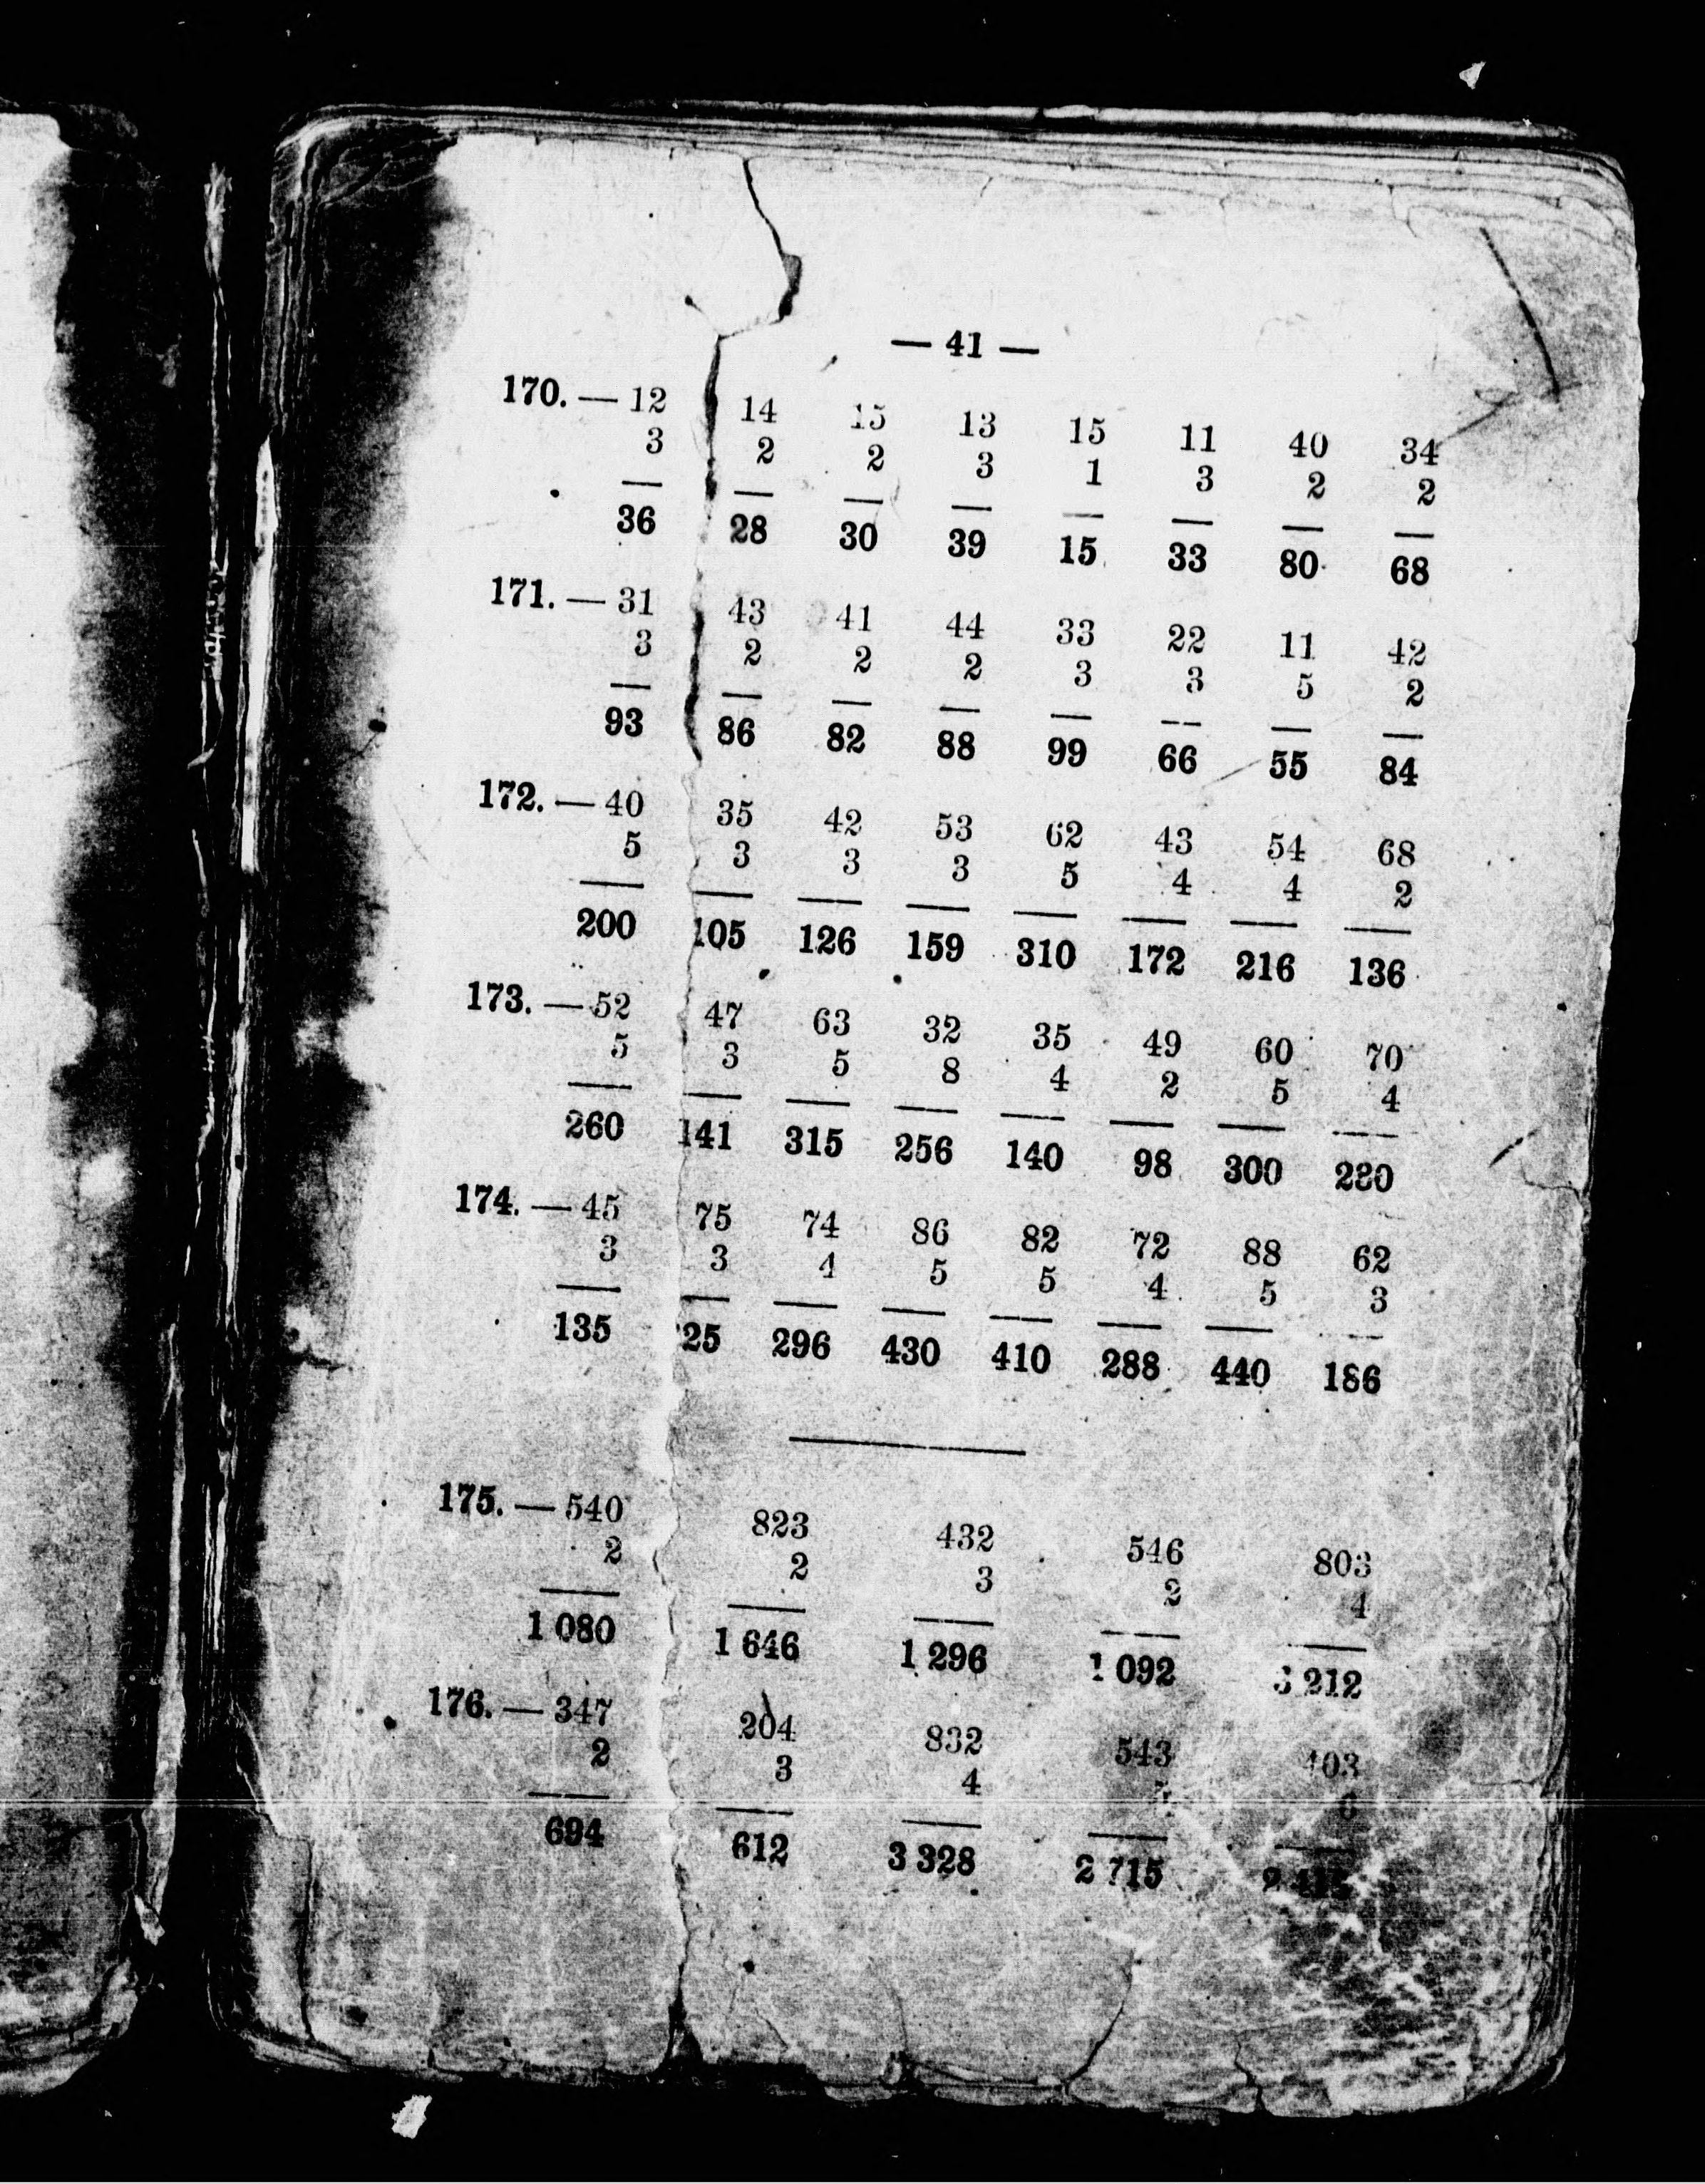 — 41 —
170. — 12 14 15 13 15 11 40 34
3 2 2 3 1 3 2 2
36 28 30 39 15 33 80 68
171. — 31 43 41 44 33 22 11 42
3 2 2 2 3 3 5 2
93 86 82 88 99 66 55 84
172. — 40 35 42 53 62 43 54 68
5 3 3 3 5 4 4 2
200 105 126 159 310 172 216 136
173. — 52 47 63 32 35 49 60 70
5 3 5 8 4 2 5 4
260 141 315 256 140 98 300 280
174. — 45 75 74 86 82 72 88 62
3 3 4 5 5 4 5 3
135 25 296 430 410 288 440 186
175. — 540 823 432 546 803
2 2 3 2 4
1 080 1 646 1 296 1 092 3 212
176. — 347 204 832 543
2 3 4
694 612 3 328 2 715